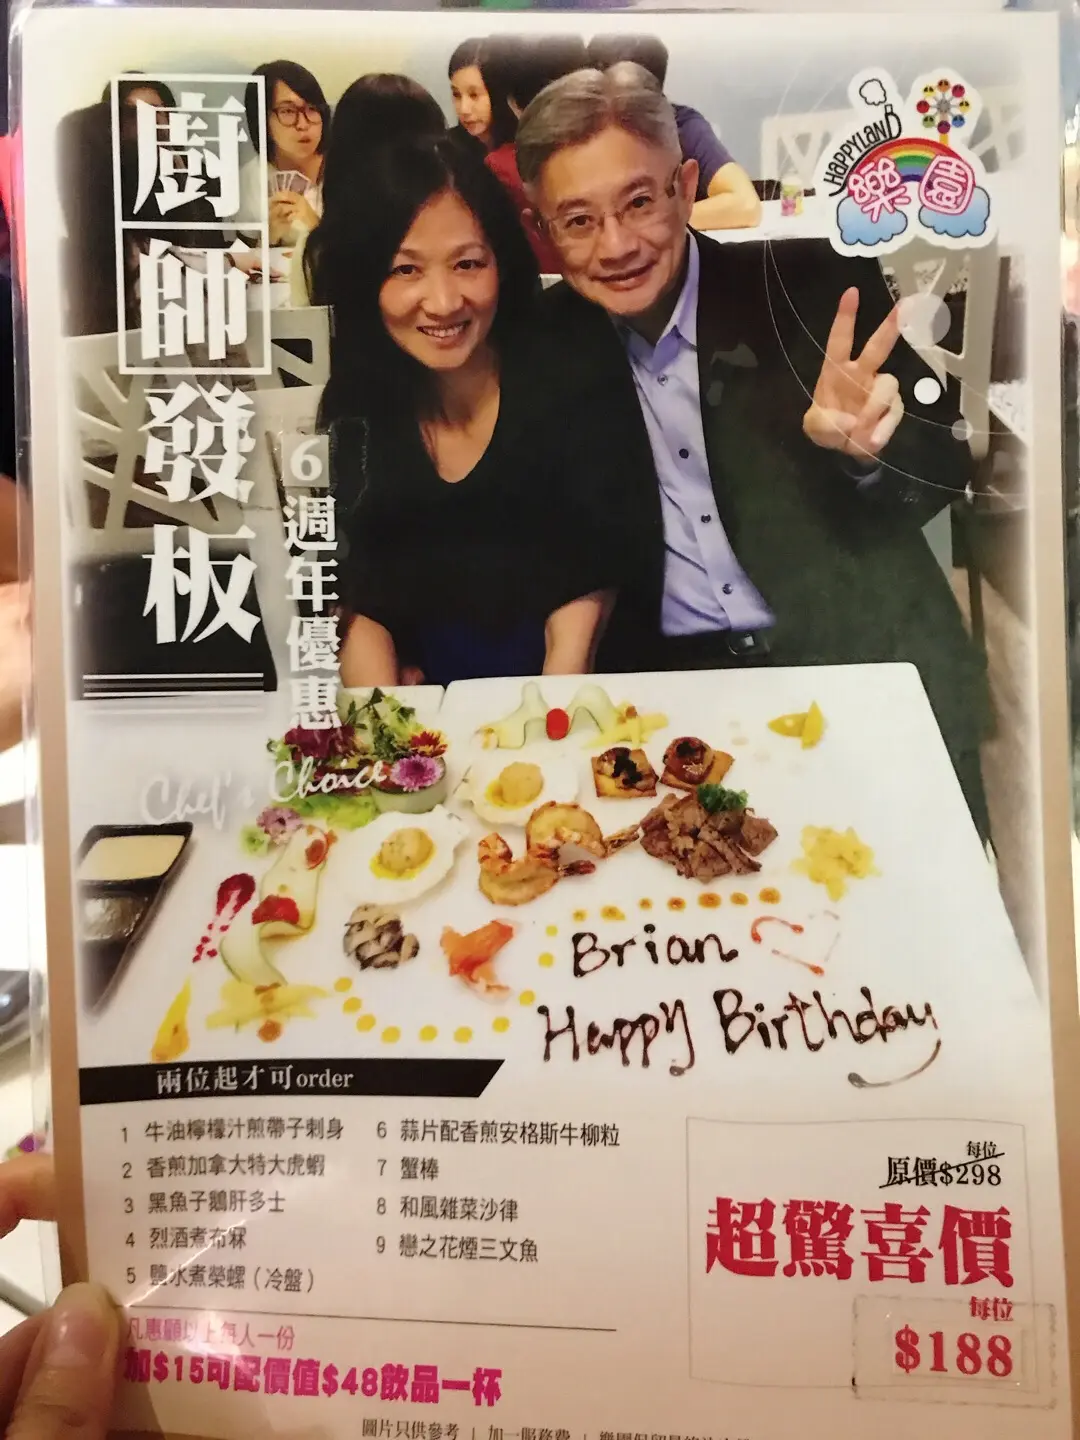 HAPPYLAND
樂園
廚師發板
6週年優惠
Chef's Choice
Brian
Happy Birthday
兩位起才可order
1 牛油檸檬汁煎帶子刺身
2 香煎加拿大特大虎蝦
3 黑魚子鵝肝多士
4 烈酒煮布冧
5 鹽水煮榮螺(冷盤)
6 蒜片配香煎安格斯牛柳粒
7 蟹棒
8 和風雜菜沙律
9 戀之花煙三文魚
每位
原價$298
超驚喜價
每位
$188
凡惠顧以上每人一份
加$15可配價值$48飲品一杯
圖片只供參考 | 加一服務費 | 樂園保留最終